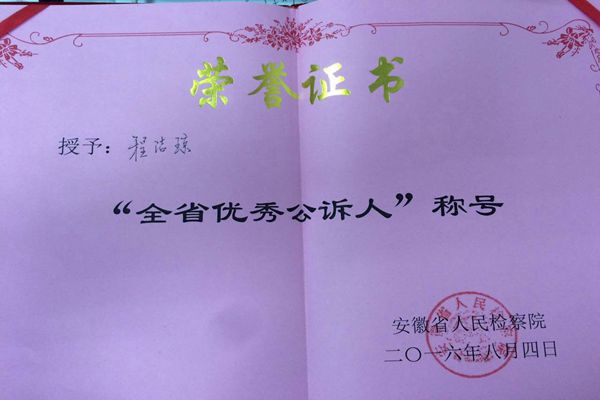 荣誉证书
授予：程洁琼
“全省优秀公诉人”称号
安徽省人民检察院
二〇一六年八月四日